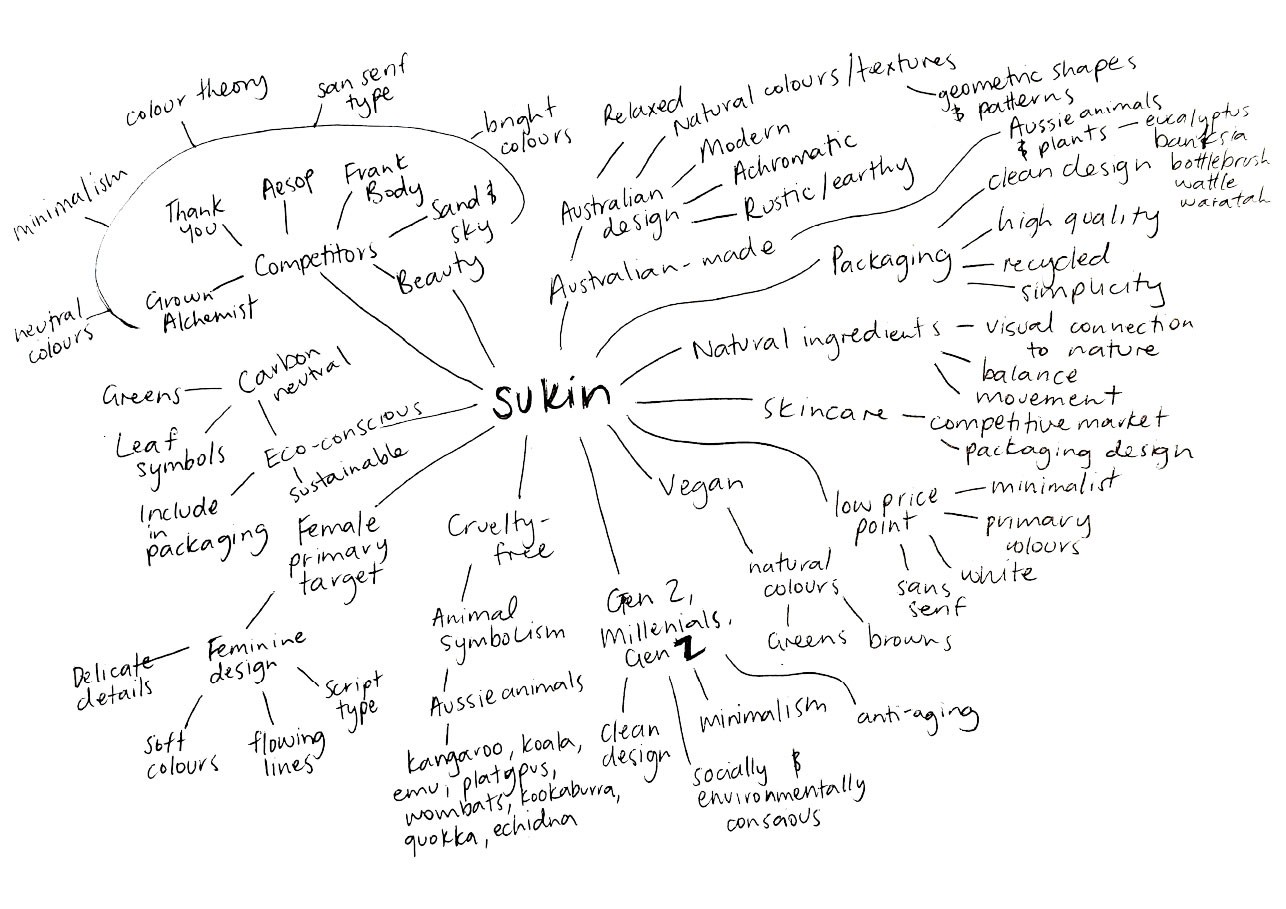 sukin
Competitors
Thank
you
Aesop
Frank
Body
Sand &
sky
Grown
Alchemist
neutral
colours
minimalism
colour theory
san serif
type
bright
colours
Beauty
Australian-made
Australian
design
Relaxed
Natural colours/textures
geometric shapes
& patterns
Modern
Achromatic
Rustic/earthy
Aussie animals
& plants
eucalyptus
banksia
bottlebrush
wattle
waratah
Packaging
clean design
high quality
recycled
simplicity
Natural ingredients
visual connection
to nature
balance
movement
Skincare
competitive market
packaging design
low price
point
minimalist
primary
colours
white
sans
serif
Vegan
natural
colours
Greens
browns
Gen Z,
Millenials,
Gen Z
clean
design
socially &
environmentally
conscious
minimalism
anti-aging
Cruelty-
free
Animal
symbolism
Aussie animals
kangaroo, koala,
emu, platypus,
wombats, kookaburra,
quokka, echidna
Female
primary
target
Feminine
design
Delicate
details
Soft
colours
flowing
lines
Script
type
Eco-conscious
sustainable
Include
in
packaging
Carbon
neutral
Greens
Leaf
symbols